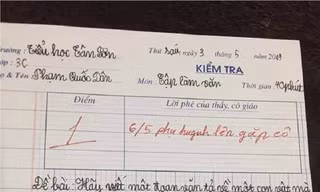 Trường: Tiểu học Tân Sơn Thứ sáu ngày 3 tháng 5 năm 2019
Lớp: 3C KIỂM TRA
Họ & Tên Phạm Quốc Tân Môn: Tập làm văn Thời gian 40 phút
Điểm Lời phê của thầy, cô giáo
1 6/5 phụ huynh lên gặp cô
Đề bài: Hãy viết một đoạn văn tả về một con vật mà